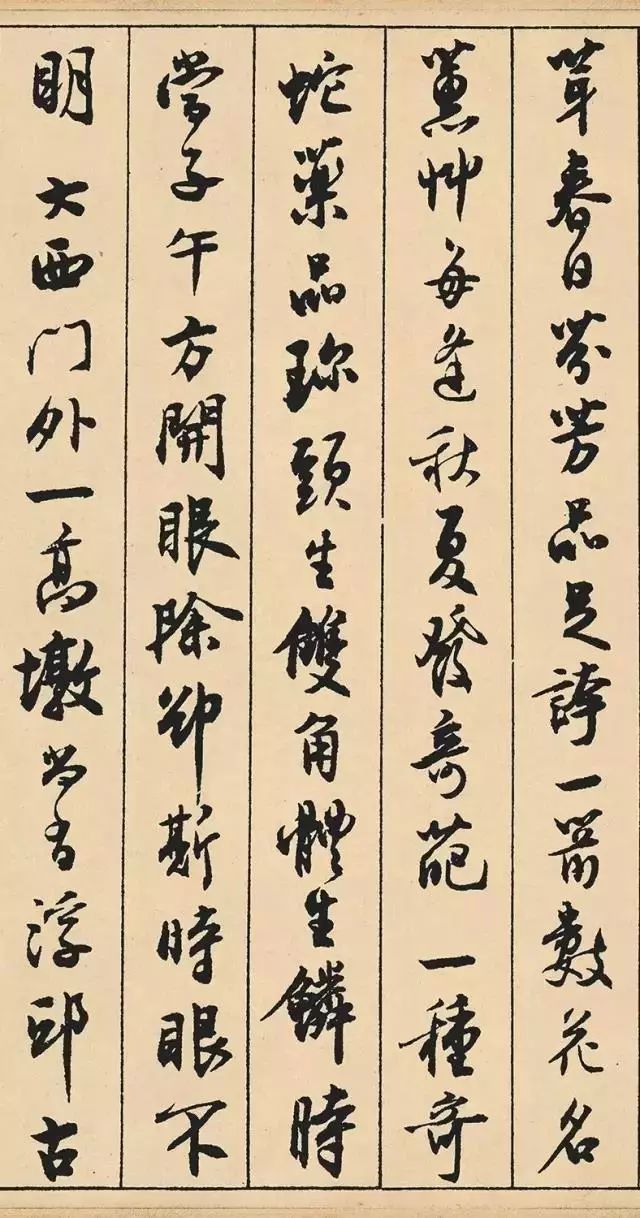 芽春日芬芳品足誇一箭數花名
蕙艸每逢秋夏發奇葩一種奇
蛇藥品珎頭生雙角體生鱗時
當子午方開眼除卻斯時眼不
明大西門外一高墩尚有浮邱古